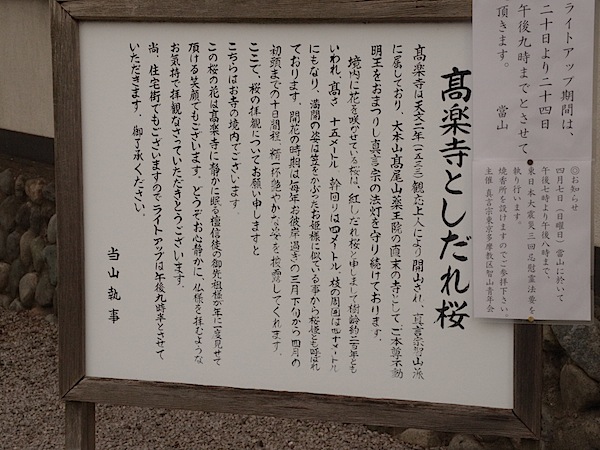 髙楽寺としだれ桜
髙楽寺は天文二年(一五三三)観応上人により開山され、真言宗智山派
に属しており、大本山髙尾山薬王院の直末の寺としてご本尊不動
明王をおまつりし真言宗の法灯を守り続けております。
境内に花を咲かせている桜は、紅しだれ桜と申しまして樹齢約二百年とも
いわれ、髙さ 十五メートル 幹回りは四メートル、枝の周囲は四十メートル
にもなり、満開の姿は笠をかぶったお姫様に似ている事から桜姫とも呼ばれ
ております。開花の時期は毎年お彼岸過ぎの三月下旬から四月の
初頭までの十日間程 精一杯艶やかな姿を披露してくれます。
ここで、桜の拝観についてお願い申しますと
こちらはお寺の境内でございます
この桜の花は髙楽寺に静かに眠る檀信徒の御先祖様が年に一度見せて
頂ける笑顔でもございます。どうぞお心静かに、仏様を拝むような
お気持で拝観なさっていただきとうございます。
尚、住宅街でもございますのでライトアップは午後九時半とさせて
いただきます。御了承ください。
当山執事
ライトアップ期間は、
二十日より二十四日
午後九時までとさせて
頂きます。 當山
◎お知らせ
四月七日(日曜日)當山に於いて
午後七時より午後八時まで、
東日本大震災三回忌慰霊法要を
執り行います。
焼香所を設けますのでご参拝下さい。
主催 真言宗東京多摩教区智山青年会